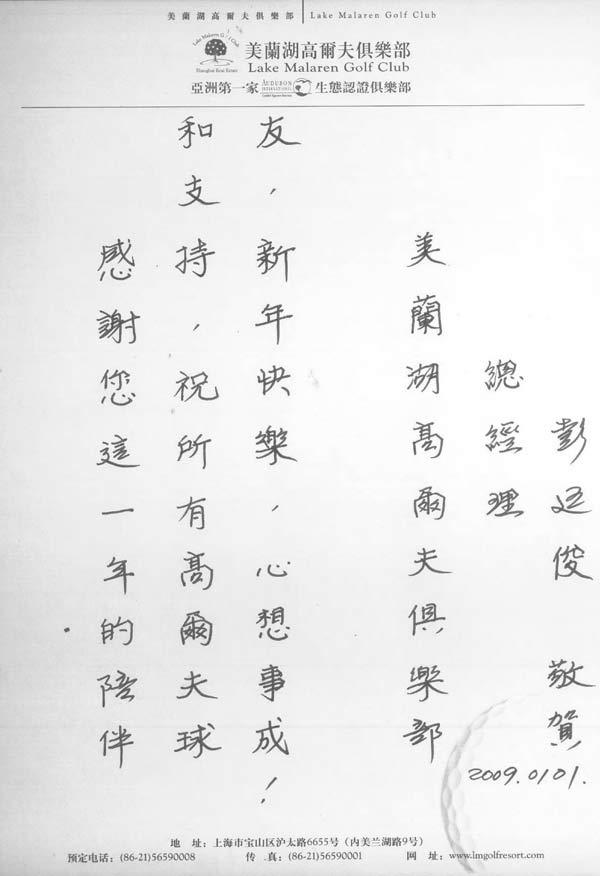 美蘭湖高爾夫俱樂部 | Lake Malaren Golf Club
Lake Malaren Golf Club
Shanghai Real Estate
美蘭湖高爾夫俱樂部
Lake Malaren Golf Club
亞洲第一家 AUDUBON INTERNATIONAL 生態認證俱樂部
感謝您這一年的陪伴
和支持，祝所有高爾夫球
友，新年快樂，心想事成！
美蘭湖高爾夫俱樂部
總經理
彭廷俊 敬賀
2009.01.01.
地 址：上海市宝山区沪太路6655号（内美兰湖路9号）
预定电话：(86-21)56590008 传 真：(86-21)56590001 网 址：www.lmgolfresort.com